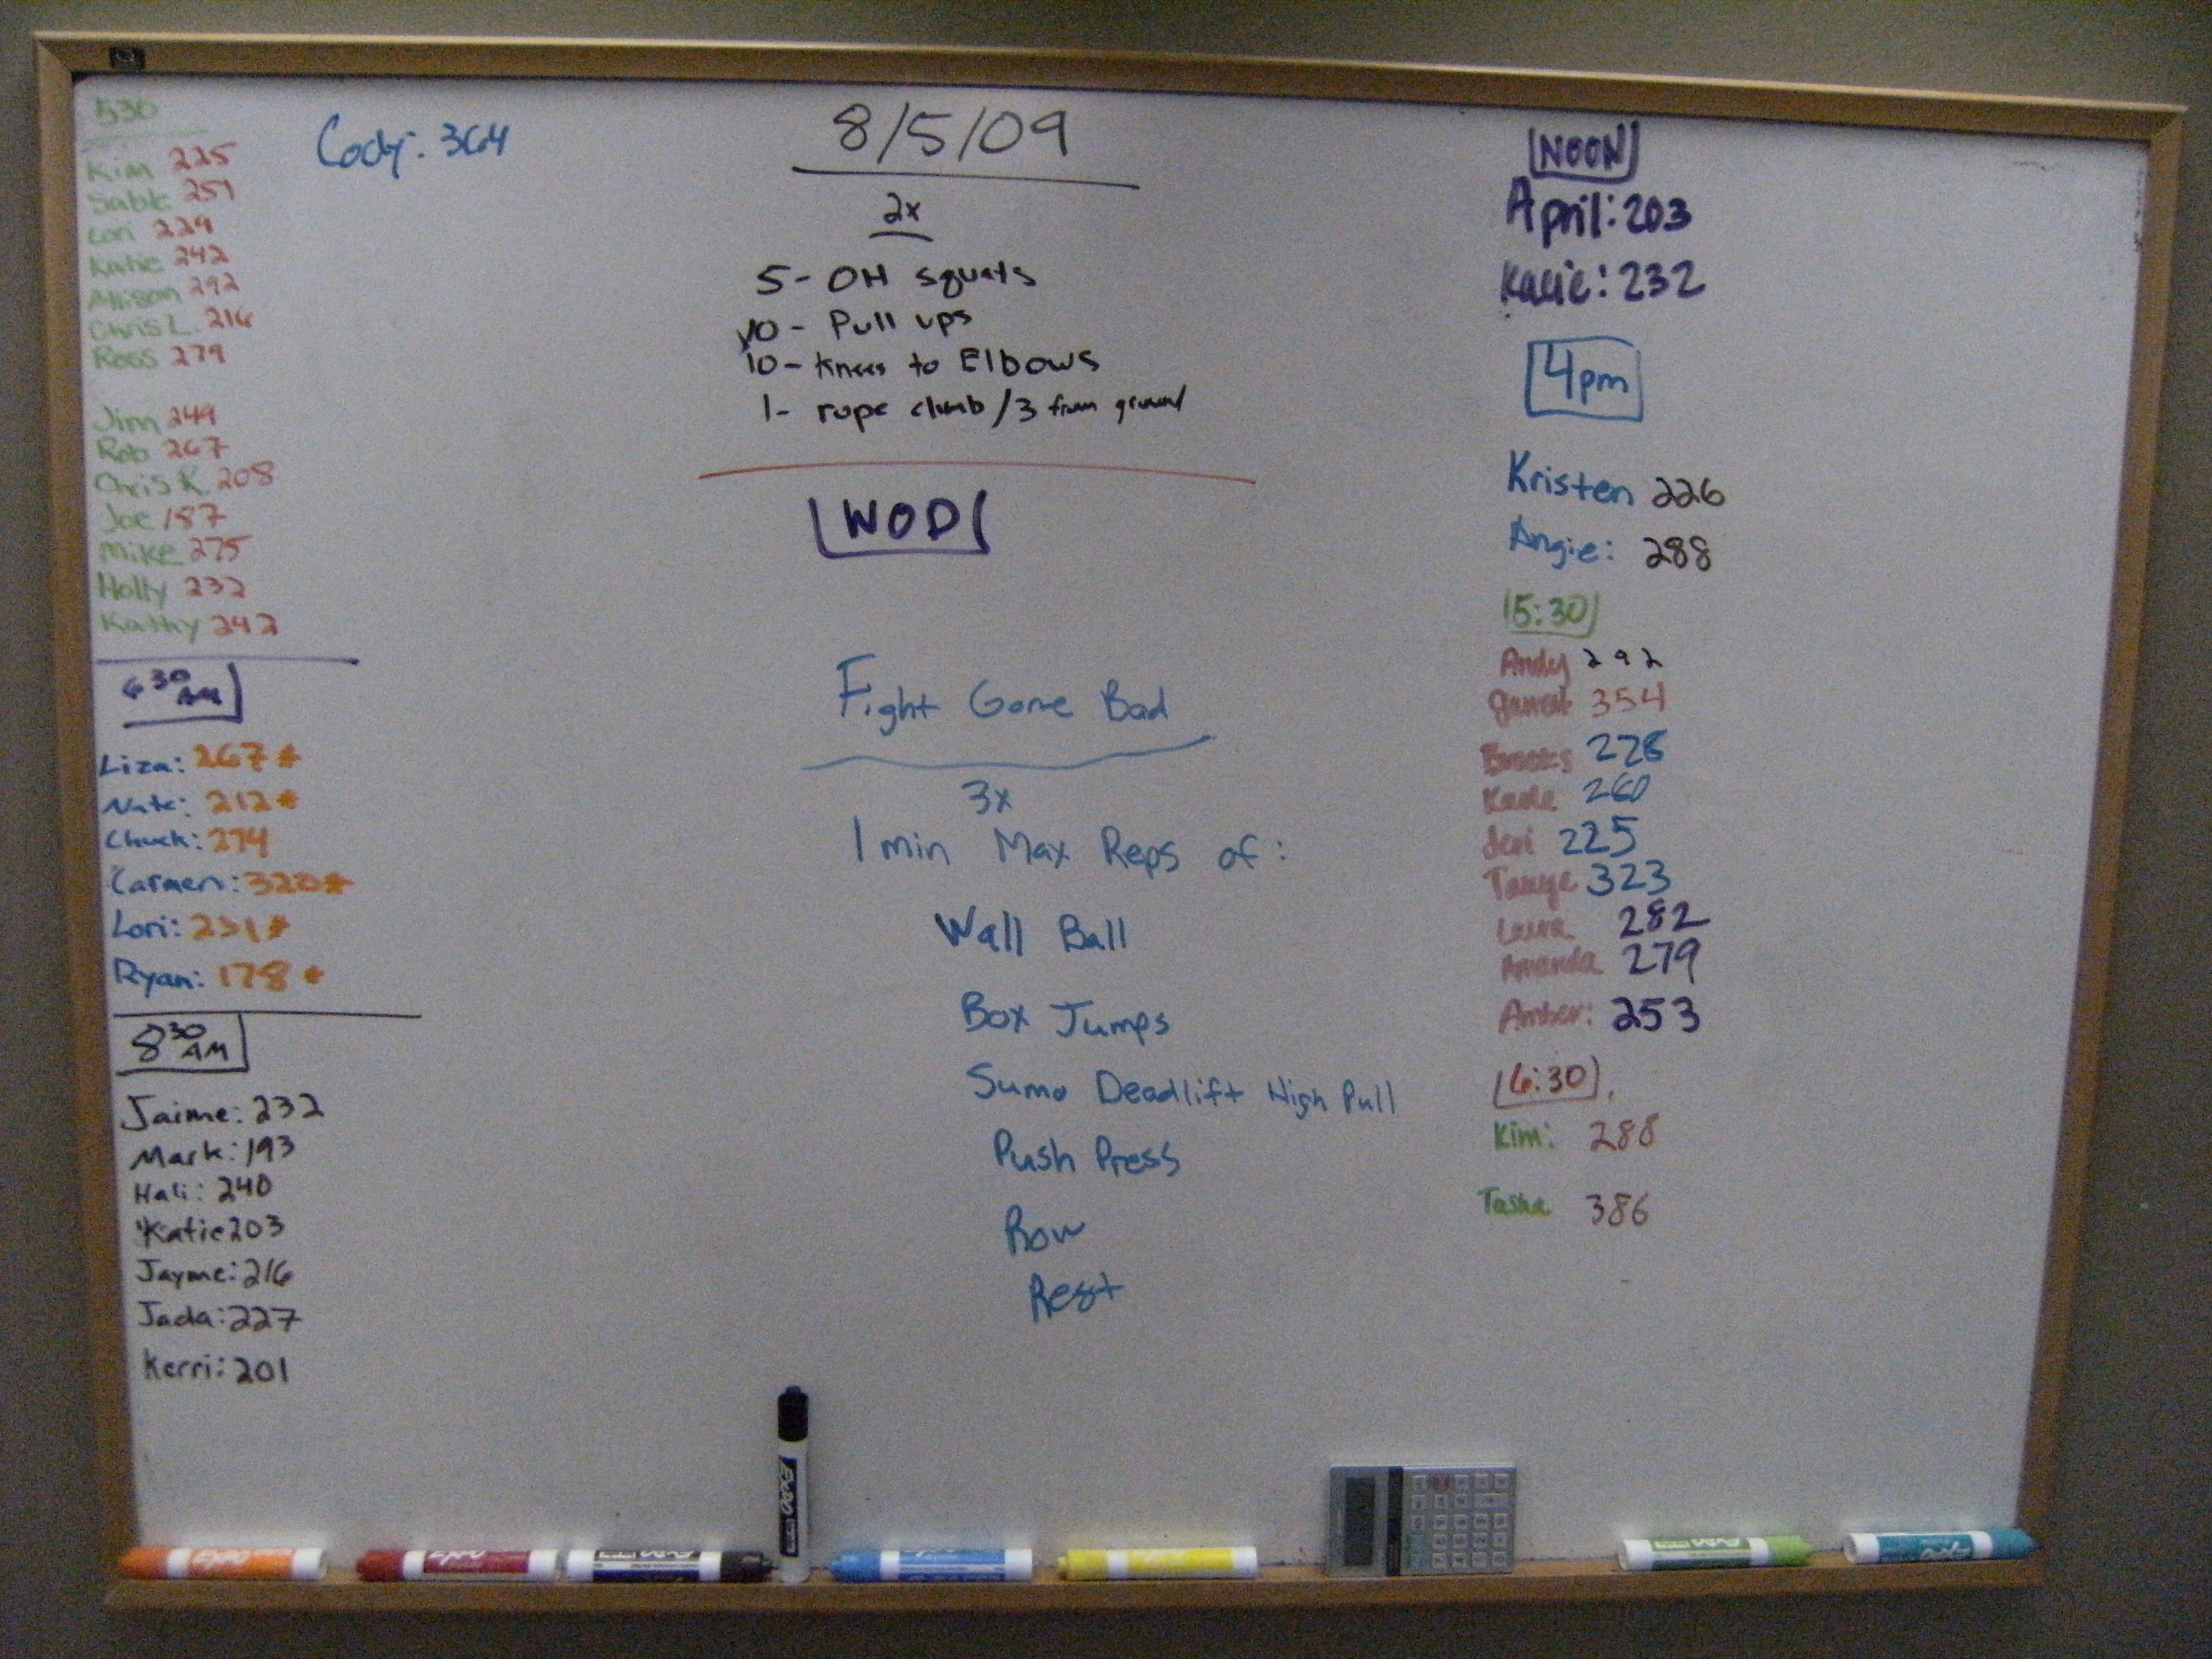 530
Kim 225
Sable 257
Lori 229
Katie 242
Allison 292
Chris L. 216
Ross 279
Jim 249
Rob 267
Chris R. 208
Joe 187
Mike 275
Holly 232
Kathy 242
6 30 AM
Liza: 267*
Nate: 212*
Chuck: 274
Carmen: 320*
Lori: 231*
Ryan: 178*
8 30 AM
Jaime: 232
Mark: 193
Hali: 240
Katie 203
Jayme: 216
Jada: 227
Kerri: 201
Cody: 364
8/5/09
2x
5- OH squats
10- Pull ups
10- Knees to Elbows
1- rope climb/3 from ground
WOD
Fight Gone Bad
3x
1 min Max Reps of:
Wall Ball
Box Jumps
Sumo Deadlift High Pull
Push Press
Row
Rest
NOON
April: 203
232
4pm
Kristen 226
Angie: 288
5:30
Andy 292
354
Brooks 228
260
Jeri 225
323
Laura 282
Amanda 279
Amber: 253
6:30
Kim: 288
Tasha 386
EXPO